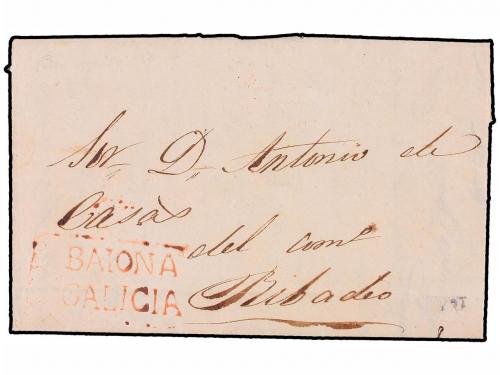 Sor. D. Antonio de
Casas
del comº
Ribadeo
BAIONA
GALICIA